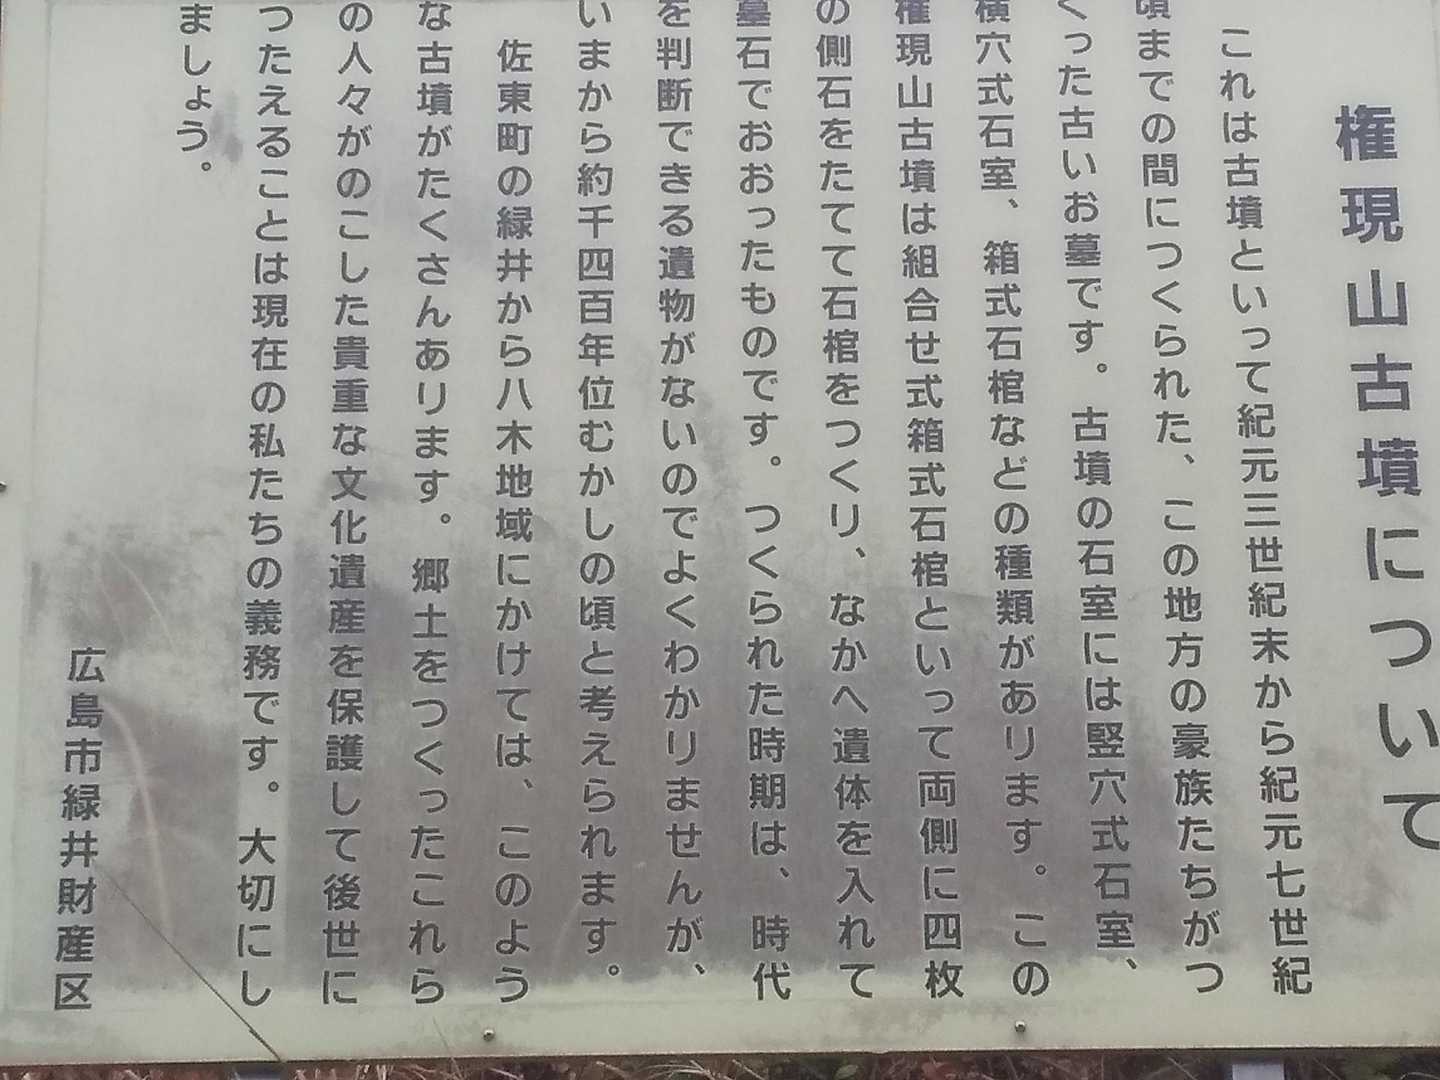 権現山古墳について
これは古墳といって紀元三世紀末から紀元七世紀
頃までの間につくられた、この地方の豪族たちがつ
くった古いお墓です。古墳の石室には竪穴式石室、
横穴式石室、箱式石棺などの種類があります。この
権現山古墳は組合せ式箱式石棺といって両側に四枚
の側石をたてて石棺をつくり、なかへ遺体を入れて
墓石でおおったものです。つくられた時期は、時代
を判断できる遺物がないのでよくわかりませんが、
いまから約千四百年位むかしの頃と考えられます。
佐東町の緑井から八木地域にかけては、このよう
な古墳がたくさんあります。郷土をつくったこれら
の人々がのこした貴重な文化遺産を保護して後世に
つたえることは現在の私たちの義務です。大切にし
ましょう。
広島市緑井財産区